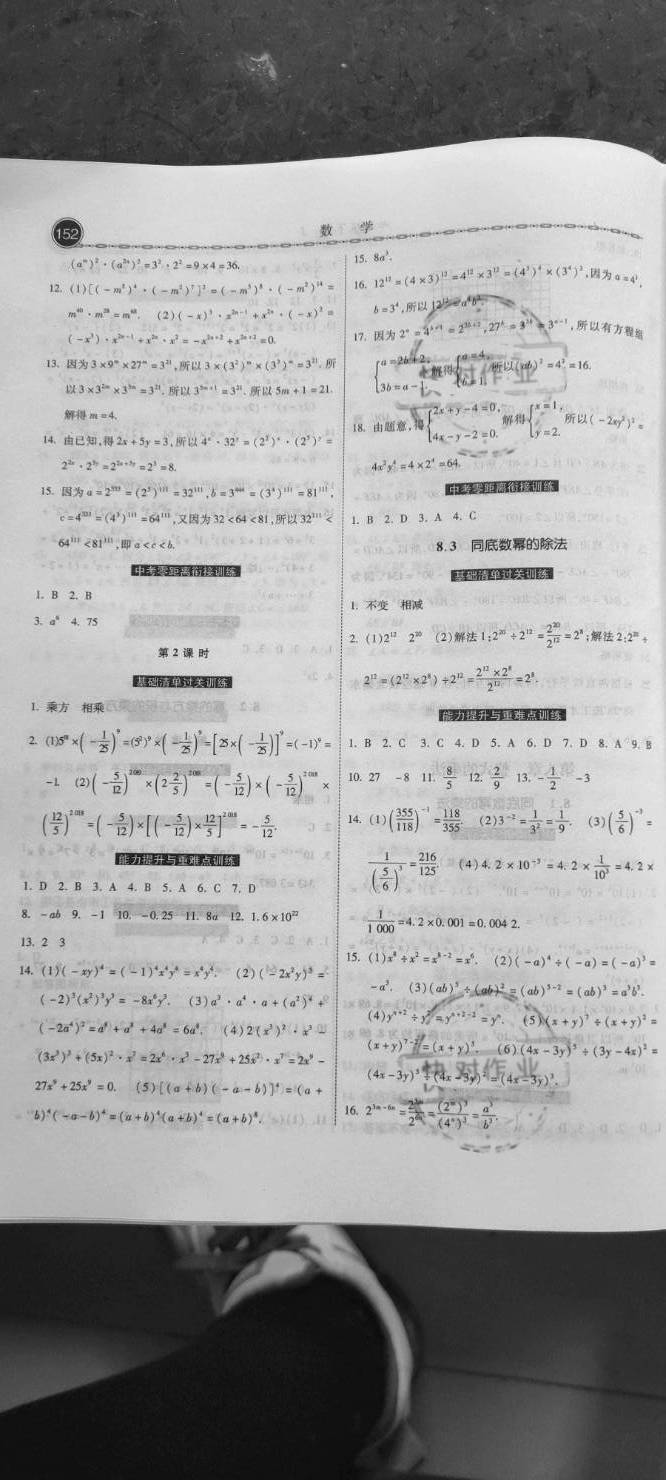 152
数 学
(aᵐ)²·(a²ⁿ)²=3²·2²=9×4=36.
12. (1)[(-m²)⁴·(-m²)⁷]²=(-m²)⁸·(-m²)¹⁴=
m⁴⁰·m²⁸=m⁶⁸. (2)(-x)³·x²ⁿ⁻¹+x²ⁿ·(-x)²=
(-x³)·x²ⁿ⁻¹+x²ⁿ·x²=-x²ⁿ⁺²+x²ⁿ⁺²=0.
13. 因为3×9ᵐ×27ᵐ=3²¹,所以3×(3²)ᵐ×(3³)ᵐ=3²¹.所
以3×3²ᵐ×3³ᵐ=3²¹.所以3⁵ᵐ⁺¹=3²¹.所以5m+1=21.
解得m=4.
14. 由已知,得2x+5y=3,所以4ˣ·32ʸ=(2²)ˣ·(2⁵)ʸ=
2²ˣ·2⁵ʸ=2²ˣ⁺⁵ʸ=2³=8.
15. 因为a=2⁵⁵⁵=(2⁵)¹¹¹=32¹¹¹,b=3⁴⁴⁴=(3⁴)¹¹¹=81¹¹¹,
c=4³³³=(4³)¹¹¹=64¹¹¹,又因为32<64<81,所以32¹¹¹<
64¹¹¹<81¹¹¹,即a<c<b.
中考零距离衔接训练
1. B 2. B
3. a⁶ 4. 75
第2课时
基础清单过关训练
1. 乘方 相乘
2. (1)5¹⁸×(-1/25)⁹=(5²)⁹×(-1/25)⁹=[25×(-1/25)]⁹=(-1)⁹=
-1. (2)(-5/12)²⁰¹⁹×(2 2/5)²⁰¹⁸=(-5/12)×(-5/12)²⁰¹⁸×
(12/5)²⁰¹⁸=(-5/12)×[(-5/12)×12/5]²⁰¹⁸=-5/12.
能力提升与重难点训练
1. D 2. B 3. A 4. B 5. A 6. C 7. D
8. -ab 9. -1 10. -0.25 11. 8a 12. 1.6×10²²
13. 2 3
14. (1)(-xy)⁴=(-1)⁴x⁴y⁴=x⁴y⁴. (2)(-2x²y)³=
(-2)³(x²)³y³=-8x⁶y³. (3)a³·a⁴·a+(a²)⁴+
(-2a⁴)²=a⁸+a⁸+4a⁸=6a⁸. (4)2(x³)²·x³-
(3x³)³+(5x)²·x⁷=2x⁶·x³-27x⁹+25x²·x⁷=2x⁹-
27x⁹+25x⁹=0. (5)[(a+b)(-a-b)]⁴=(a+
b)⁴(-a-b)⁴=(a+b)⁴(a+b)⁴=(a+b)⁸.
15. 8a³.
16. 12¹²=(4×3)¹²=4¹²×3¹²=(4³)⁴×(3⁴)³,因为a=4³,
b=3⁴,所以12¹²=a⁴b³.
17. 因为2ᵃ=4ᵇ⁺¹=2²ᵇ⁺²,27ᵇ=3³ᵇ=3ᵃ⁻¹,所以有方程组
{a=2b+2, 3b=a-1. 解得{a=4, b=1. 所以(ab)²=4²=16.
18. 由题意,得{2x+y-4=0, 4x-y-2=0. 解得{x=1, y=2. 所以(-2xy²)²=
4x²y⁴=4×2⁴=64.
中考零距离衔接训练
1. B 2. D 3. A 4. C
8.3 同底数幂的除法
基础清单过关训练
1. 不变 相减
2. (1)2¹² 2²⁰ (2)解法1:2²⁰÷2¹²=2²⁰/2¹²=2⁸;解法2:2²⁰÷
2¹²=(2¹²×2⁸)÷2¹²=2¹²×2⁸/2¹²=2⁸.
能力提升与重难点训练
1. B 2. C 3. C 4. D 5. A 6. D 7. D 8. A 9. B
10. 27 -8 11. 8/5 12. 2/9 13. -1/2 -3
14. (1)(355/118)⁻¹=118/355. (2)3⁻²=1/3²=1/9. (3)(5/6)⁻³=
1/(5/6)³=216/125. (4)4.2×10⁻³=4.2×1/10³=4.2×
1/1 000=4.2×0.001=0.004 2.
15. (1)x⁸÷x²=x⁸⁻²=x⁶. (2)(-a)⁴÷(-a)=(-a)³=
-a³. (3)(ab)⁵÷(ab)²=(ab)⁵⁻²=(ab)³=a³b³.
(4)yⁿ⁺²÷y²=yⁿ⁺²⁻²=yⁿ. (5)(x+y)⁷÷(x+y)²=
(x+y)⁷⁻²=(x+y)⁵. (6)(4x-3y)⁵÷(3y-4x)²=
(4x-3y)⁵÷(4x-3y)²=(4x-3y)³.
16. 2³ᵐ⁻⁶ⁿ=2³ᵐ/2⁶ⁿ=(2ᵐ)³/(4ⁿ)³=a³/b³.
快对作业
快对作业